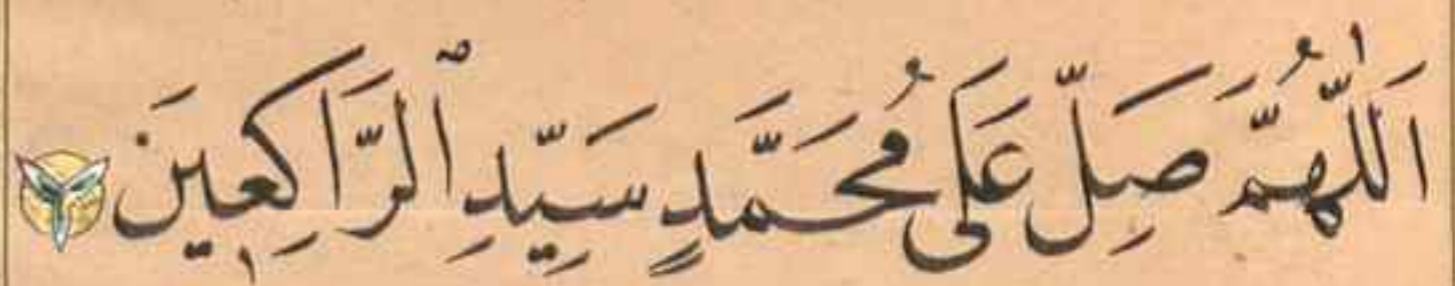 اَللّٰهُمَّ صَلِّ عَلَى مُحَمَّدٍ سَيِّدِ ٱلرَّاكِعِينَ